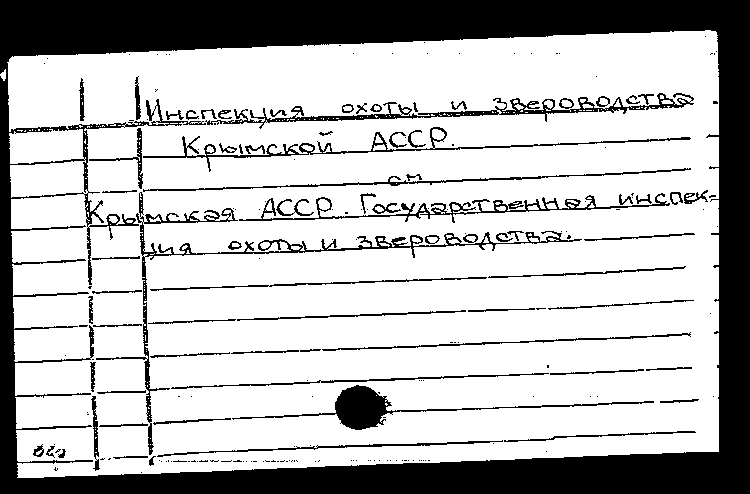 Инспекция охоты и звероводства
Крымской АССР.
см.
Крымская АССР. Государственная инспек-
ция охоты и звероводства.